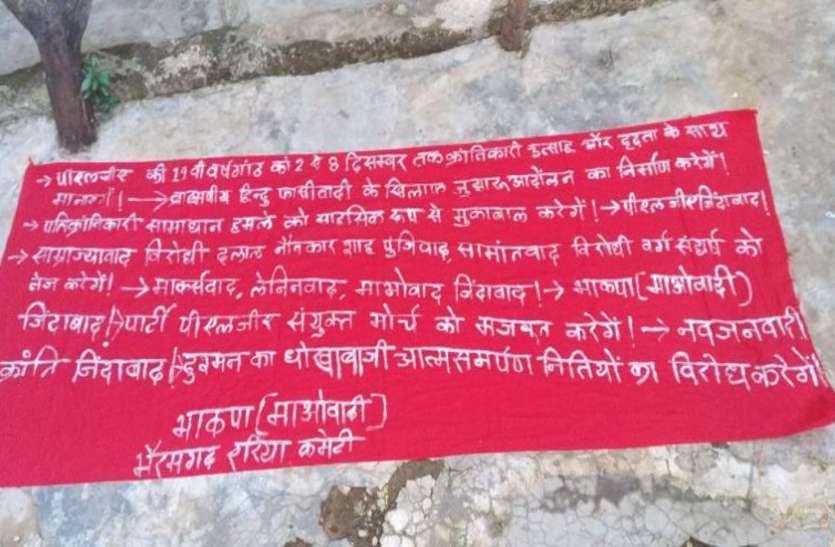 → पीएलजीए की 19 वी वर्षगांठ को 2 से 8 दिसम्बर तक क्रांतिकारी उत्साह और दृढ़ता के साथ
मानाएगें! → ब्राह्मणीय हिन्दु फासीवादी के खिलाफ जुझारू आंदोलन का निर्माण करेगें!
→ प्रतिक्रांतिकारी सामाधान हमले को साहसिक रूप से मुकाबाल करेगें! → पीएलजीए जिंदाबाद!
→ साम्राज्यावाद विरोधी दलाल नौकर शाह पुंजिवाद, सामांतवाद विरोधी वर्ग संघर्ष को
तेज करेगें! → मार्क्सवाद, लेनिनवाद, माओवाद जिंदाबाद! → भाकपा (माओवादी)
जिंदाबाद! → पार्टी पीएलजीए संयुक्त मोर्चा को मजबुत करेगें! → नवजनवादी
क्रांति जिंदाबाद! दुश्मन का धोखाबाजी आत्मसमर्पण नितियों का विरोध करेगें!
भाकपा (माओवादी)
भैरमगढ़ एरिया कमेटी